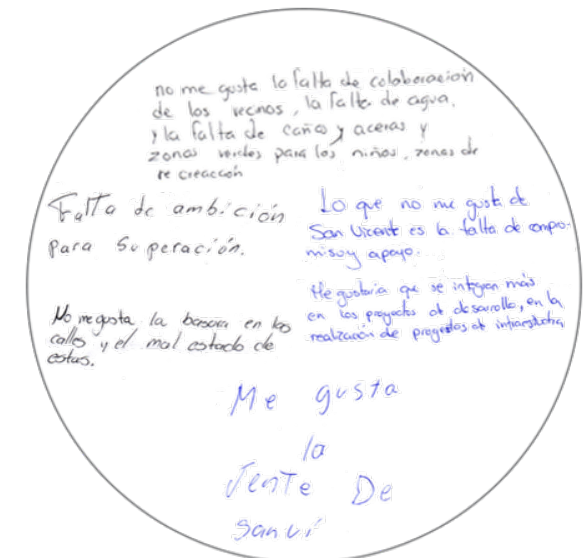 no me gusta la falta de colaboración
de los vecinos, la falta de agua,
y la falta de caños y aceras y
zonas verdes para los niños, zonas de
re creacción
Falta de ambición
para Superación.
Lo que no me gusta de
San Vicent es la falta de compro-
miso y apoyo.
Me gustaria que se integren más
en los proyectos de desarrollo, en la
realización de proyectos de infraestructura
No me gusta la basura en las
calles y el mal estado de
estas.
Me gusta
la
Jente De
San vi